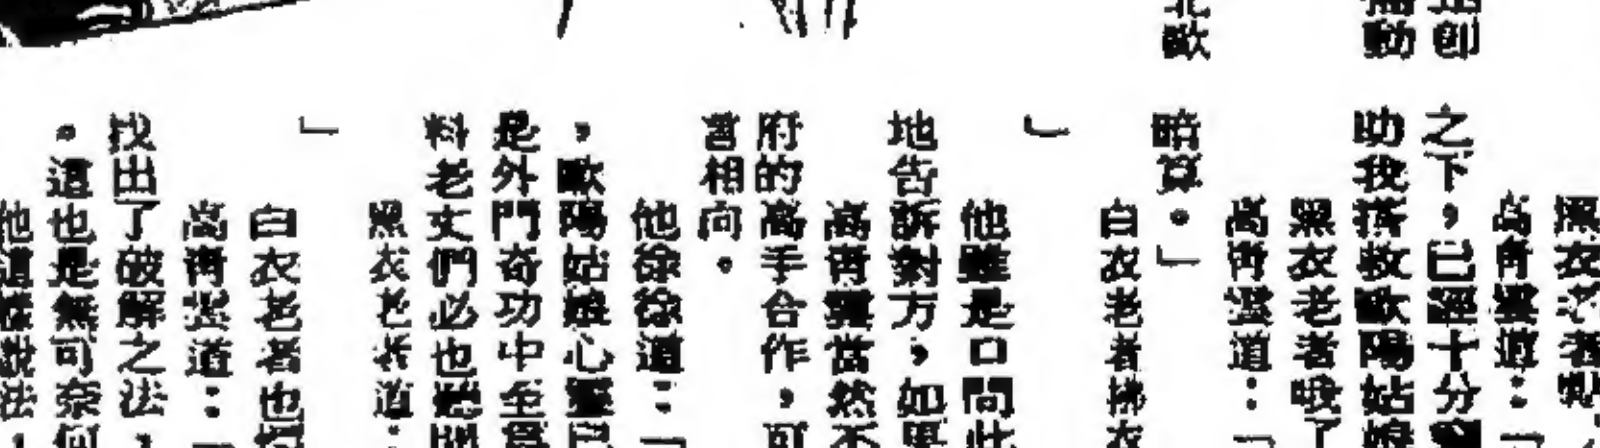 創
動
歐
黑衣老者點
高青雲道：「
之下，已經十分
助我拯救歐陽姑娘
黑衣老者哦了
高青雲道：「
暗算。」
白衣老者拂衣
」
他雖是口問此
地告訴對方，如果
高青雲當然不
府的高手合作，可
言相向。
他徐徐道：「
，歐陽姑娘心靈已
是外門奇功中至
料老丈們必也聽聞
黑衣老者道：
」
白衣老者也
高青雲道：「
找出了破解之法，
。這也是無可奈何
他這樣說法，